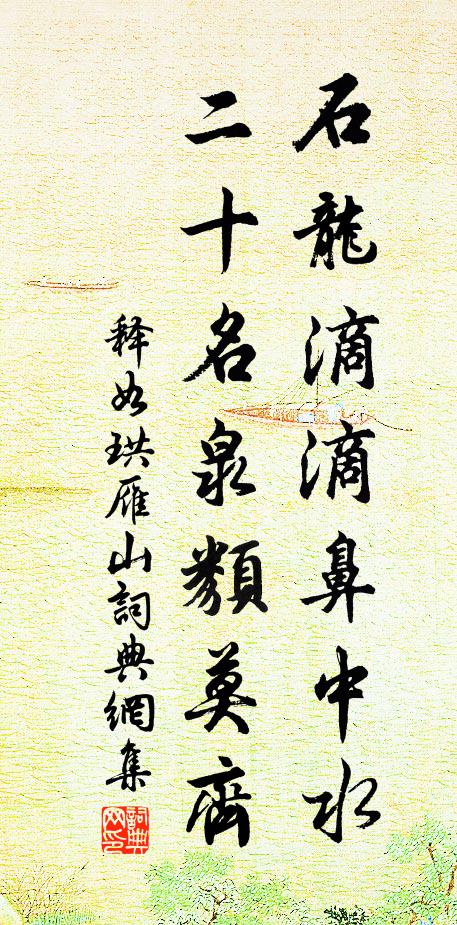 石龍滴滴鼻中水
二十名泉類莫齊
釋如珙雁山詞典網集
詞典網印